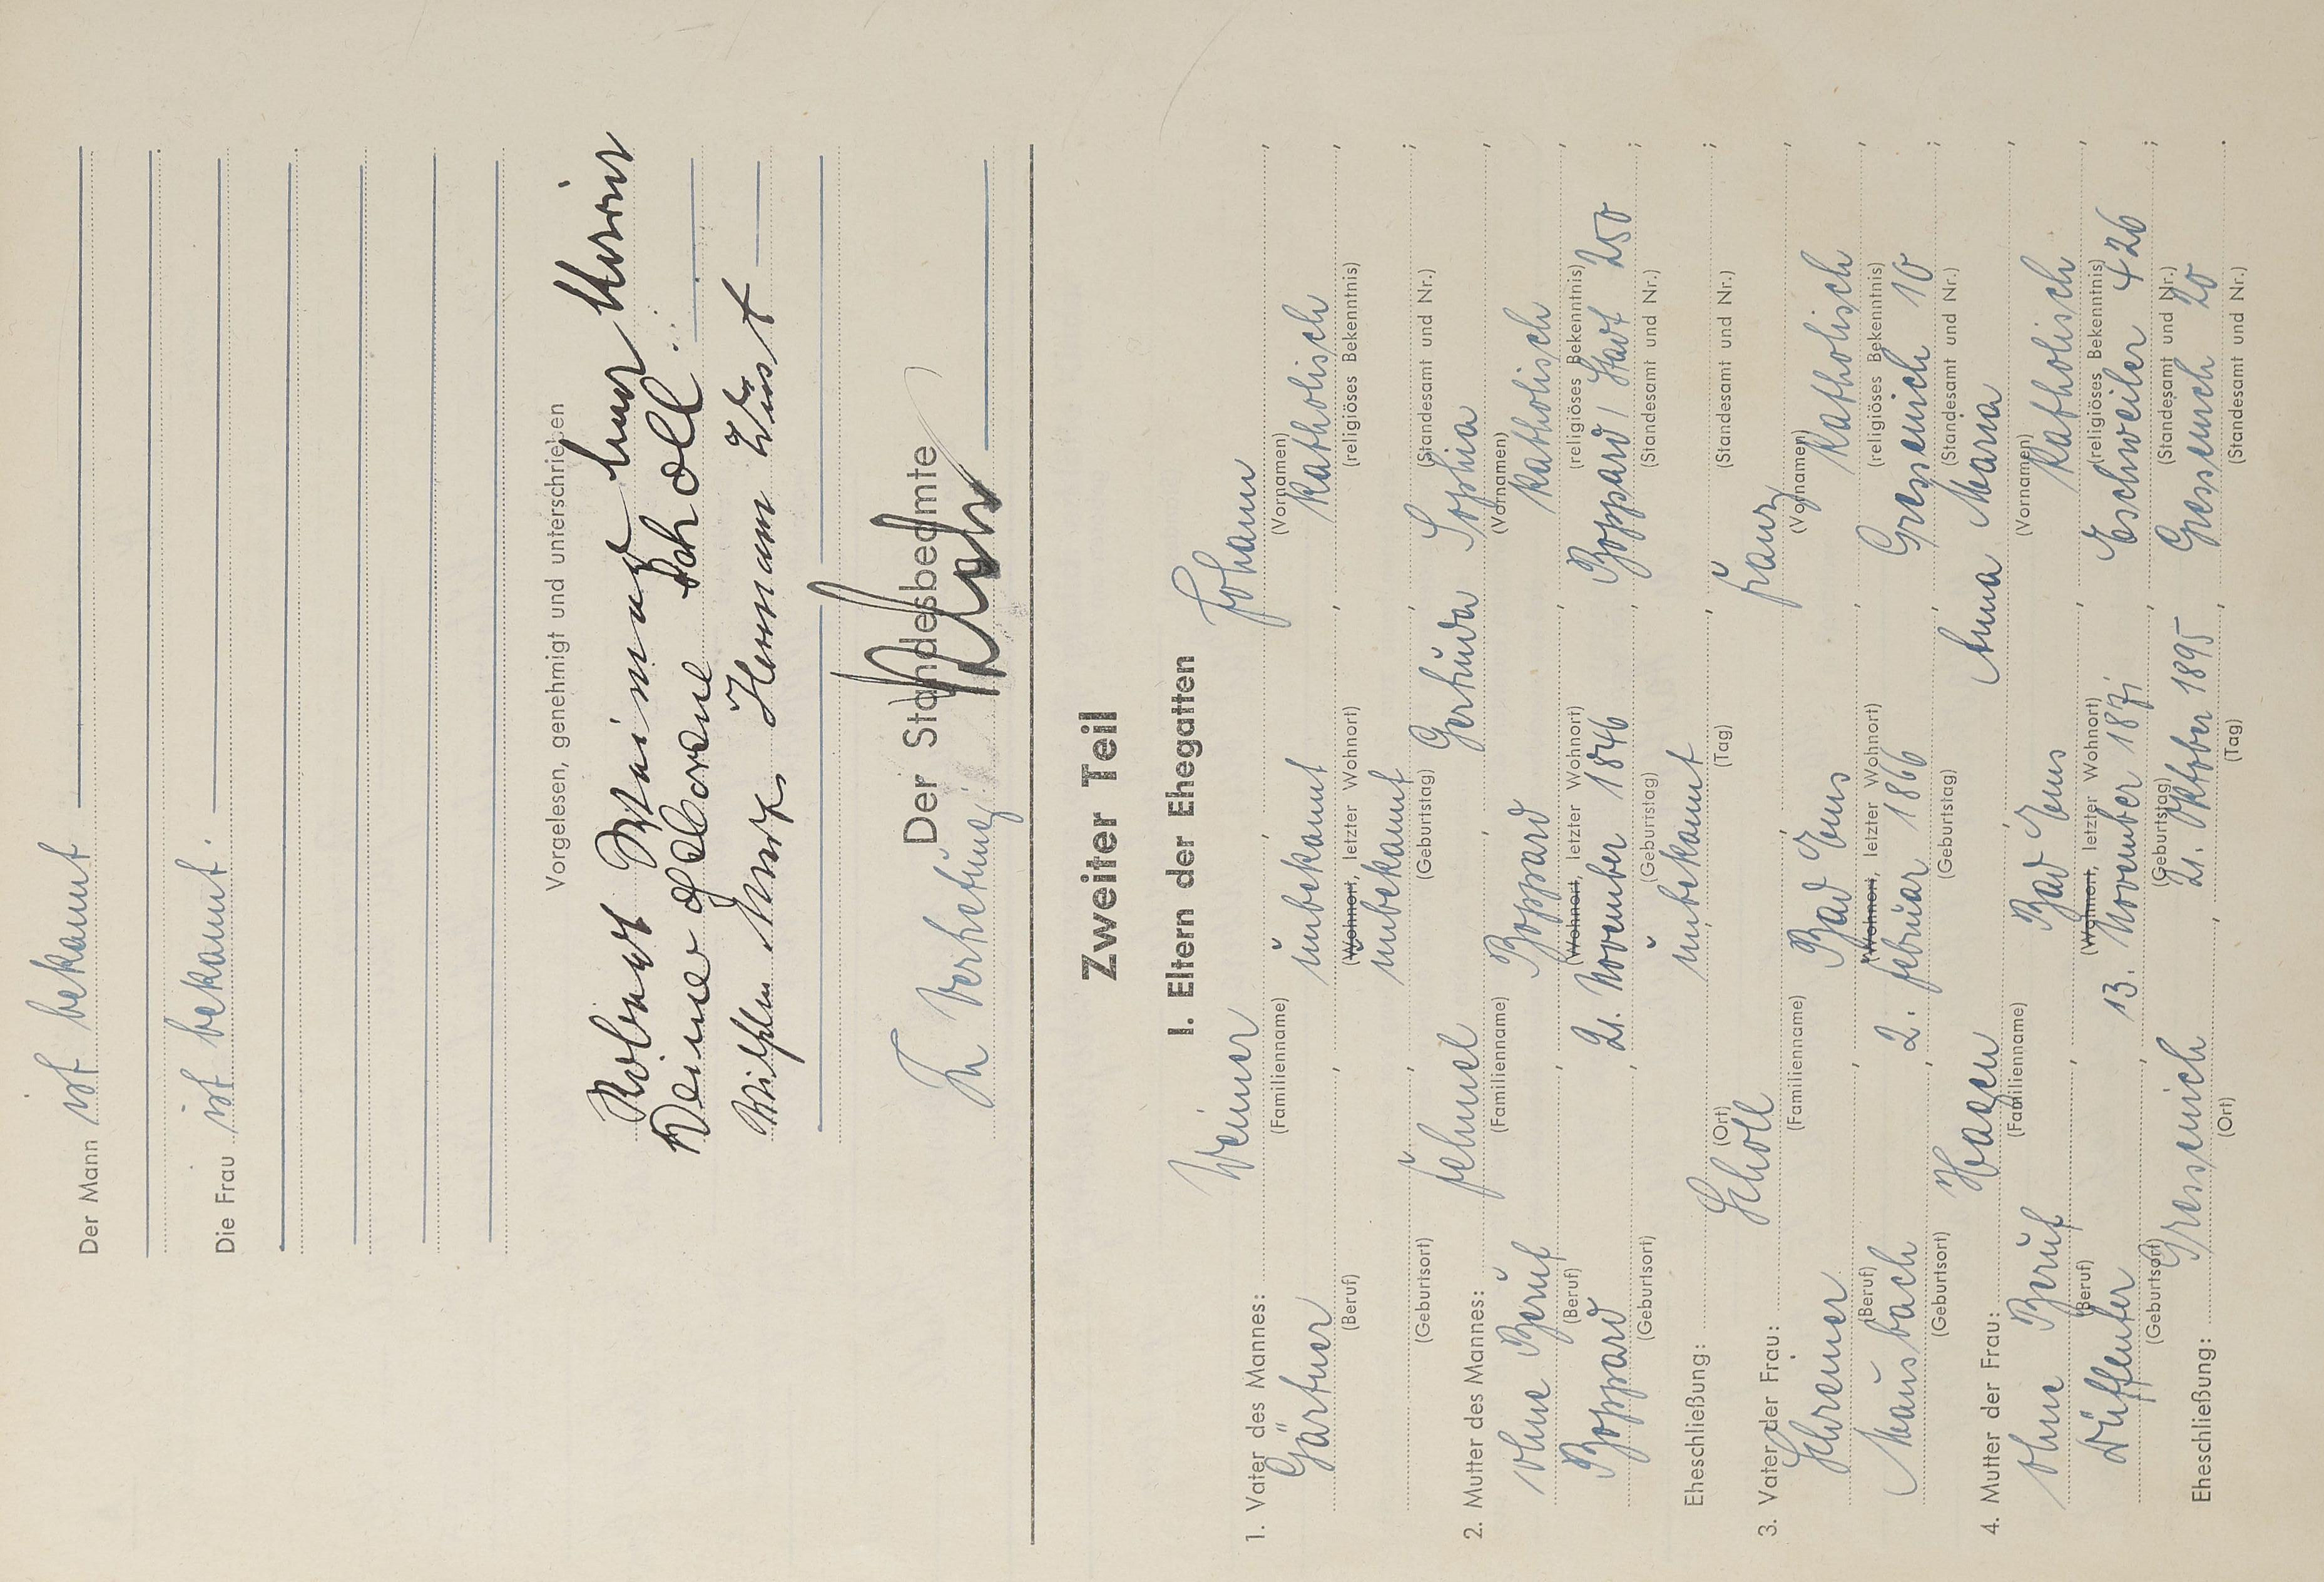 Der Mann ist bekannt
Die Frau ist bekannt.
Vorgelesen, genehmigt und unterschrieben
Schöll
Hermann Wüst
Der Standesbeamte
In Vertretung:
Zweiter Teil
I. Eltern der Ehegatten
1. Vater des Mannes: Weiner, Johann
(Familienname) (Vornamen)
Gärtner, unbekannt, Katholisch,
(Beruf) (Wohnort, letzter Wohnort) (religiöses Bekenntnis)
unbekannt
(Geburtsort) (Geburtstag) (Standesamt und Nr.)
2. Mutter des Mannes: Gertrude Sophia,
(Familienname) (Vornamen)
ohne Beruf, Boppard, Katholisch,
(Beruf) (Wohnort, letzter Wohnort) (religiöses Bekenntnis)
Boppard, 21. November 1846, Boppard/Stadt 250;
(Geburtsort) (Geburtstag) (Standesamt und Nr.)
Eheschließung: unbekannt;
(Ort) (Tag) (Standesamt und Nr.)
3. Vater der Frau: Schöll, Franz,
(Familienname) (Vornamen)
Schreiner, Bad Ems, Katholisch,
(Beruf) (Wohnort, letzter Wohnort) (religiöses Bekenntnis)
Mausbach, 2. Februar 1866, Gressenich 10;
(Geburtsort) (Geburtstag) (Standesamt und Nr.)
4. Mutter der Frau: Hagen, Anna Maria,
(Familienname) (Vornamen)
ohne Beruf, Bad Ems, Katholisch,
(Beruf) (Wohnort, letzter Wohnort) (religiöses Bekenntnis)
13. November 1871, Eschweiler 426;
(Geburtsort) (Geburtstag) (Standesamt und Nr.)
Eheschließung: Gressenich, 21. Oktober 1895, Gressenich 20.
(Ort) (Tag) (Standesamt und Nr.)